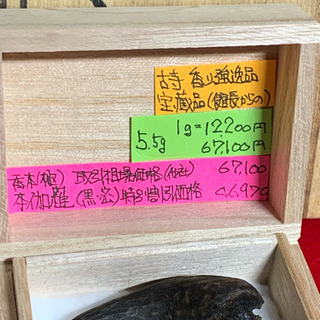 古寺 香り強逸品
宝蔵品(館長からの)
1g=12200円
5.5g 67,100円
香木(極) 取引相場価格(他社) 67,100
本伽羅(黒・蜜) 特別割引価格 46,970